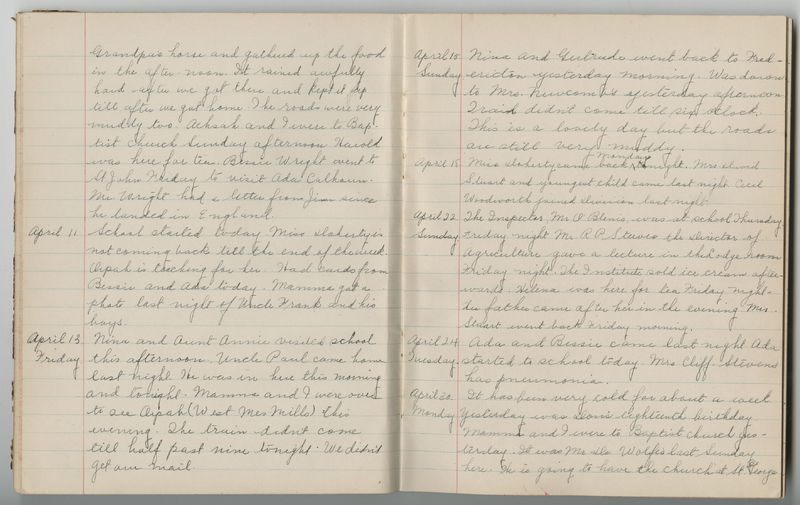 Grandpa's horse and gathered up the food
in the after-noon. It rained awfully
hard after we got there and kept it up
till after we got home. The roads were very
muddy too. Achsah and I were to Bap-
tist Church Sunday afternoon Harold
was here for tea. Bessie Wright went to
St John Friday to visit Ada Calhoun.
Mr Wright had a letter from Jim since
he landed in England.
April 11. School started today Miss Doherty is
not coming back till the end of the week.
Orpah is teaching for her. Had cards from
Bessie and Ada today. Mamma got a
photo last night of Uncle Frank and his
boys.
April 13 Nina and Aunt Annie visited school
Friday this afternoon. Uncle Paul came home
last night. He was in here this morning
and tonight. Mamma and I were over
to see Orpah (West Mrs Mills) this
evening. The train didn't come
till half past nine tonight. We didn't
get our mail
April 15 Nina and Gertrude went back to Fred-
Sunday ericton yesterday morning. Was down
to Mrs. Newcomb's yesterday afternoon
Train didn't come till six o'clock.
This is a lovely day but the roads
are still very muddy.
April 18 Miss Doherty came back Monday night. Mrs
Stuart and youngest child came last night Cecil
Woodworth joined Division last night.
April 22 The Inspector, Mr O'Blenis, was at school Thursday
Sunday Friday night Mr R P Steeves the Director of
Agriculture gave a lecture in the Lodge room
Friday night. The Institute sold ice cream after-
wards. Helena was here for tea Friday night-
her father came after her in the evening. Mrs.
Stuart went back Friday morning.
April 24 Ada and Bessie came last night Ada
Tuesday. started to school today. Mrs Cliff Stevens
has pneumonia.
April 30 It has been very cold for about a week
Monday Yesterday was Don's eighteenth birthday
Mamma and I were to Baptist church yes-
terday. It was Mr De Wolfe's last Sunday
here. He is going to have the church at St. George